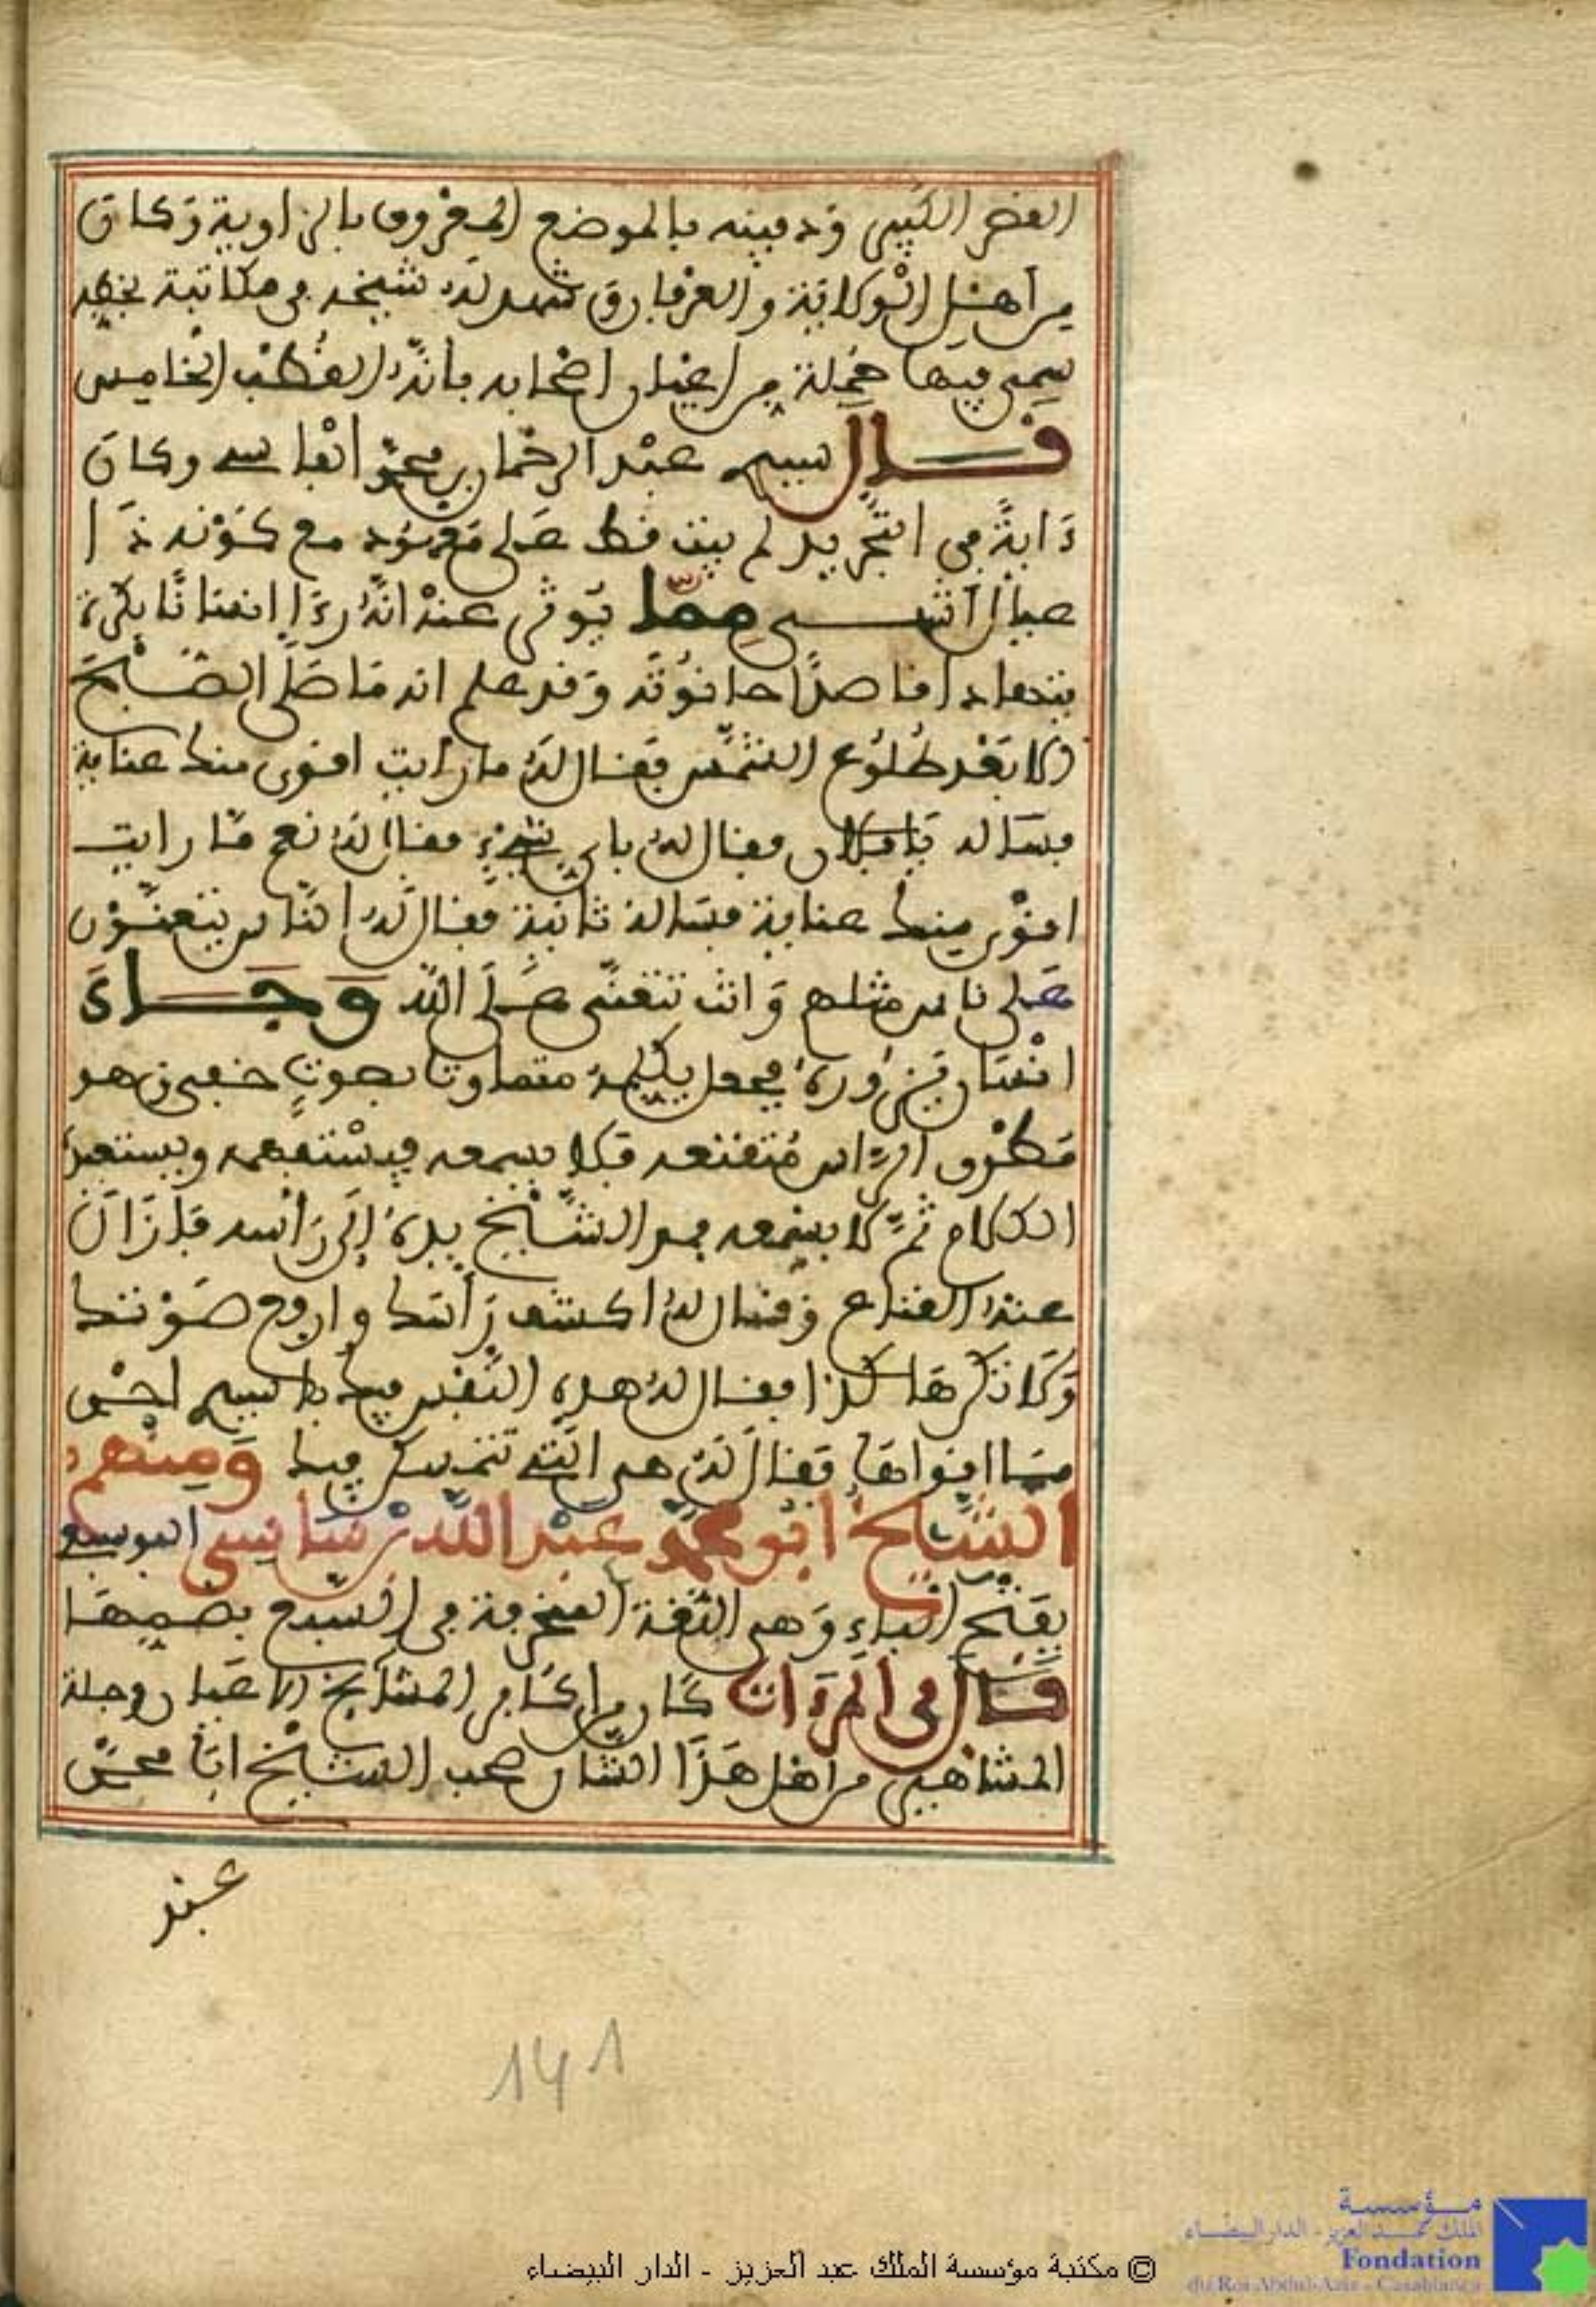 القصر الكبير ودفينه بالموضع المعروف بالزاوية وكان
من أهل الولاية والعرفان شهد له شيخه في مكاتبة بخطه
سمى فيها جملة من أعيان أصحابه بأنه القطب الخامس
قال سيدي عبد الرحمان بن محمد الفاسي وكان
آية في التجريد لم يبت قط على معهود مع كونه ذا
عيال انتهى مما يوثر عنه أنه رءا إنسانا بكرة
بنحا قاصدا حانوته وقد علم انه ما صلى الصبح
إلا بعد طلوع الشمس فقال له ما رأيت أقوى منك عناية
فسأله يا فلان فقال له بأي شيء فقال له نعم ما رأيت
أقوى منك عناية فسأله ثانية فقال له الناس يتعنون
على ناس مثلهم وانت تتعنى على الله وجاء
إنسان يزوره فجعل يكلمه متماوتا بصوت خفي وهو
مطرق الرأس متقنعه فلا يسمعه فيستفهمه ويستعيد
الكلام ثم لا يسمعه فمد الشيخ يده إلى رأسه فأزال
عنه القناع وقال له اكشف رأسك وارفع صوتك
ولا تكرها كذا فقال له هذه النفس فيك يا سيدي احس
ما اقواها فقال له هي التي تتمسكن فيك ومنهم
الشيخ أبو محمد عبد الله بن ساسي البوسبعي
بفتح الباء وهي اللغة في السبع بضمها
قال في المرءات كان من أكابر المشايخ الأعيان وجلة
المشاهير من أهل هذا الشأن صحب الشيخ أبا محمد
عبد
141
© مكتبة مؤسسة الملك عبد العزيز - الدار البيضاء
مؤسسة
الملك عبد العزيز - الدار البيضاء
Fondation
du Roi Abdul-Aziz - Casablanca